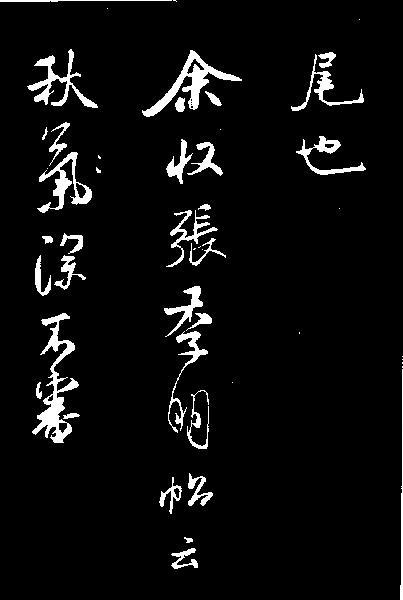 尾也
余收張季明帖云
秋氣深不審